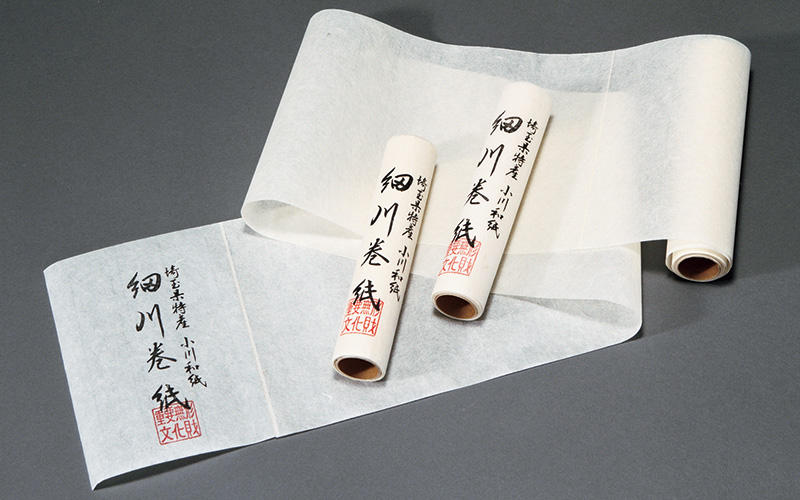 埼玉県特産 小川和紙
細川巻紙
重要無形
文化財
埼玉県特産 小川和紙
細川巻紙
重要無形
文化財
埼玉県特産 小川和紙
細川巻紙
重要無形
文化財